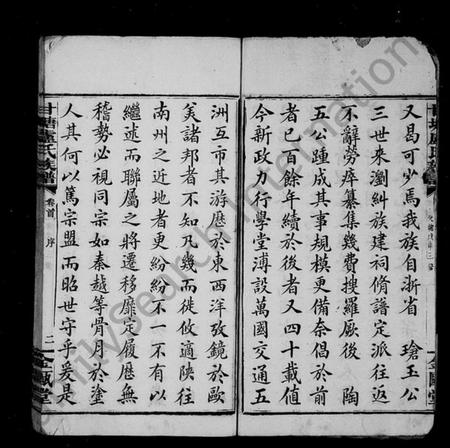 又曷可少焉我族自浙省 瑲玉公
三世來瀏糾族建祠脩譜定派往返
不辭勞瘁纂集幾費搜羅厥後 陶
五公踵成其事規模更備奈倡於前
者已百餘年續於後者又四十載值
今新政力行學堂溥設萬國交通五
洲互市其游歷於東西洋攷鏡於歐
美諸邦者不知凡幾而徙攸適陝往
南州之近地者更紛紛不一不有以
繼述而聯屬之將遷移靡定履歷無
稽勢必視同宗如秦越等骨月於塗
人其何以篤宗盟而昭世守乎爰是
甘塘盧氏族譜 卷首 序 二 金鳳堂